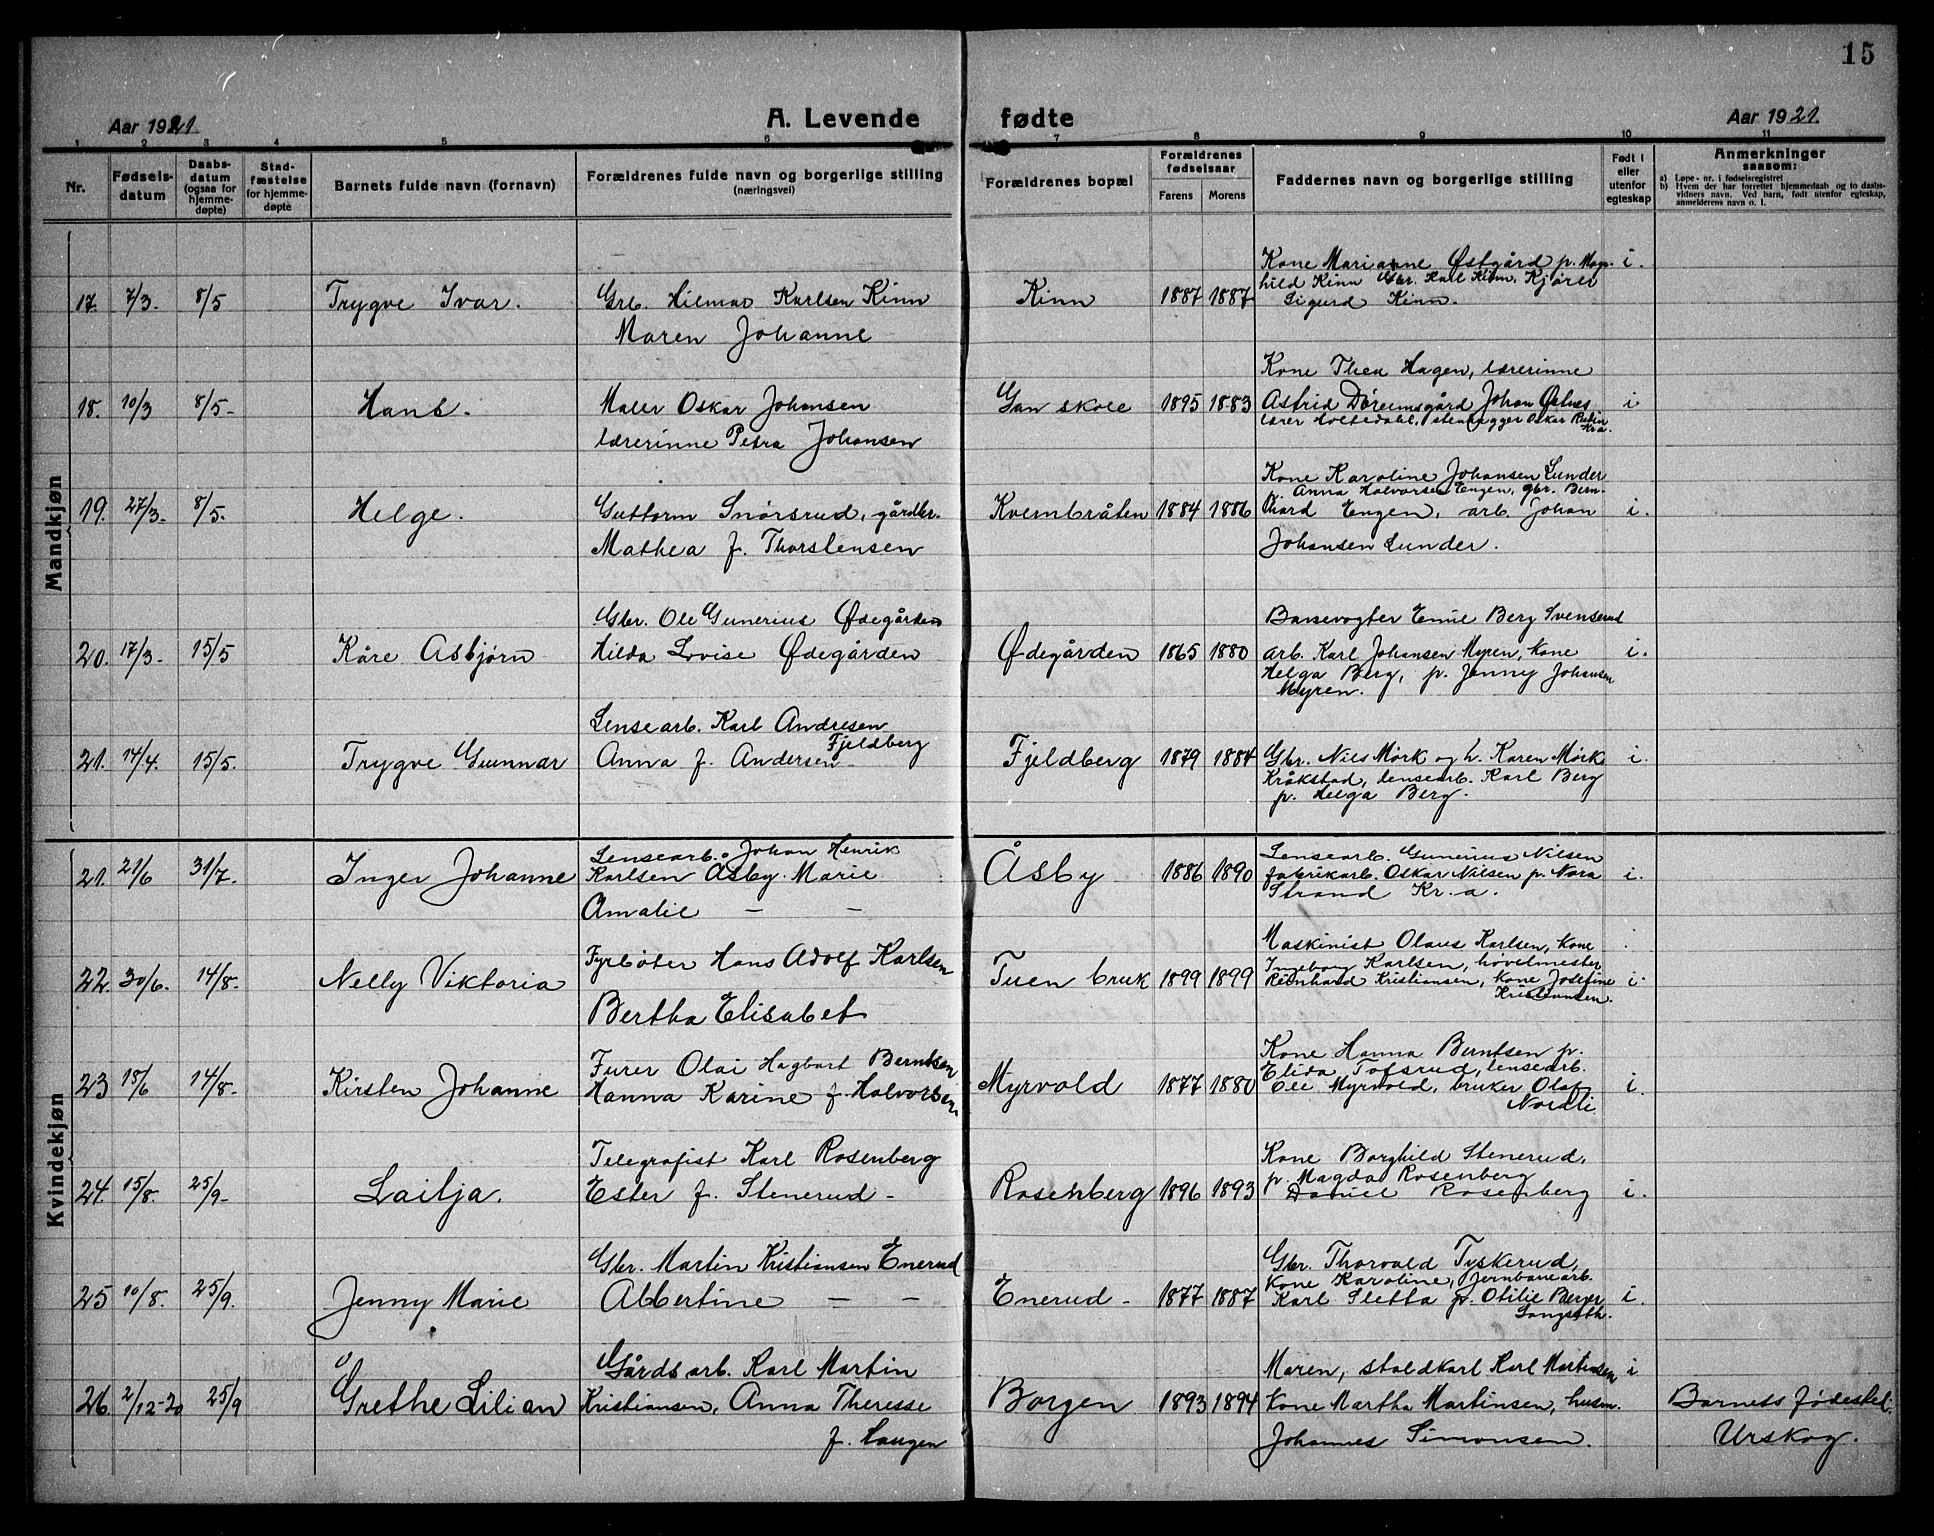 15
Aar 1921
A. Levende fødte
Aar 1921.
1 2 3 4 5 6 7 8 9 10 11
Nr.
Fødsels-
datum
Daabs-
datum
(ogsaa for
hjemme-
døpte)
Stad-
fæstelse
for hjemme-
døpte
Barnets fulde navn (fornavn)
Forældrenes fulde navn og borgerlige stilling
(næringsvei)
Forældrenes bopæl
Forældrenes
fødselsaar
Farens Morens
Faddernes navn og borgerlige stilling
Født i
eller
utenfor
egteskap
Anmerkninger
saasom:
a) Løpe-nr. i fødselsregistret
b) Hvem der har forrettet hjemmedaab og to daabs-
vidners navn. Ved barn, født utenfor egteskap,
anmelderens navn o. l.
Mandkjøn
17. 7/3. 8/5 Trygve Ivar.
Grb. Hilmar Karlsen Kinn
Maren Johanne
Kinn 1887 1887
Kone Marianne Østgård p. Mag-
hild Kinn Gbr. Karl Kinn, Kjører
Sigurd Kinn.
i.
18. 10/3 8/5- Hans.
Maler Oskar Johansen
lærerinne Petra Johansen
Gan skole 1895 1883
Kone Thea Hagen, lærerinne
Astrid Johan
lærer Holtedahl, stenhugger Oskar Rubin
Kra.
i
19. 27/3. 8/5. Helge.
Guttorm Snørsrud, gårdbr.
Mathea f. Thorstensen
Kvernbråten 1884 1886
Kone Karoline Johansen Lunder
p. Anna Halvorsen Engen, gbr. Bern-
hard Engen, arb. Johan
Johansen Lunder.
i.
20. 17/3. 15/5 Kåre Asbjørn
Gbr. Ole Gunerius Ødegården
Hilda Lovise Ødegården
Ødegården 1865 1880
Banevogter Emil Berg Svenserud
arb. Karl Johansen Myren, Kone
Helga Berg, p. Jenny Johansen
Myren.
i.
21. 14/4. 15/5. Trygve Gunnar
Lensearb. Karl Andresen
Fjeldberg
Anna f. Andersen
Fjeldberg 1879 1884
Gbr. Nils Mørk og h. Karen Mørk
Kråkstad, lensearb. Karl Berg
p. Helga Berg.
i.
Kvindekjøn
21. 21/6 31/7. Inger Johanne
Lensearb. Johan Henrik
Karlsen Åsby. Marie
Amalie — —
Åsby 1886 1890
Lensearb. Gunerius Nilsen
fabrikarb. Oskar Nilsen p. Nora
Strand Kr.a.
i.
22. 30/6. 14/8. Nelly Viktoria
Fyrbøter Hans Adolf Karlsen
Bertha Elisabet
Tuen bruk 1899 1899
Maskinist Olaus Karlsen, Kone
Ingeborg Karlsen, høvelmester
Reinhard Kristiansen, Kone Josefine
Kristiansen.
i
23 18/6 14/8. Kirsten Johanne
Furer Olai Hagbart Berntsen
Hanna Karine f. Halvorsen.
Myrvold 1877 1880
Kone Hanna Berntsen p.
Elida Tofsrud, lensearb.
Ole Myrvold, bruker Olaf
Nordli.
i.
24. 15/8. 25/9- Lailja.
Telegrafist Karl Rosenberg
Ester f. Stenerud -
Rosenberg 1896 1893
Kone Borghild Stenerud,
p. Magda Rosenberg
Daniel Rosenberg
i.
25 10/8. 25/9. Jenny Marie
Gbr. Martin Kristiansen Enerud
Albertine — —
Enerud - 1877 1887
Gbr. Thorvald Tyskerud,
Kone Karoline, Jernbanearb.
Karl Sletta p. Otilie Berger
Langseth.
i.
26. 2/12-20 25/9 Grethe Lilian
Gårdsarb. Karl Martin
Kristiansen, Anna Theresse
f. Haugen
Borgen 1893 1894
Maren, staldkarl Karl Martinsen
Kone Martha Martinsen, husm.
Johannes Simonsen.
i
Barnets fødested.
Urskog.